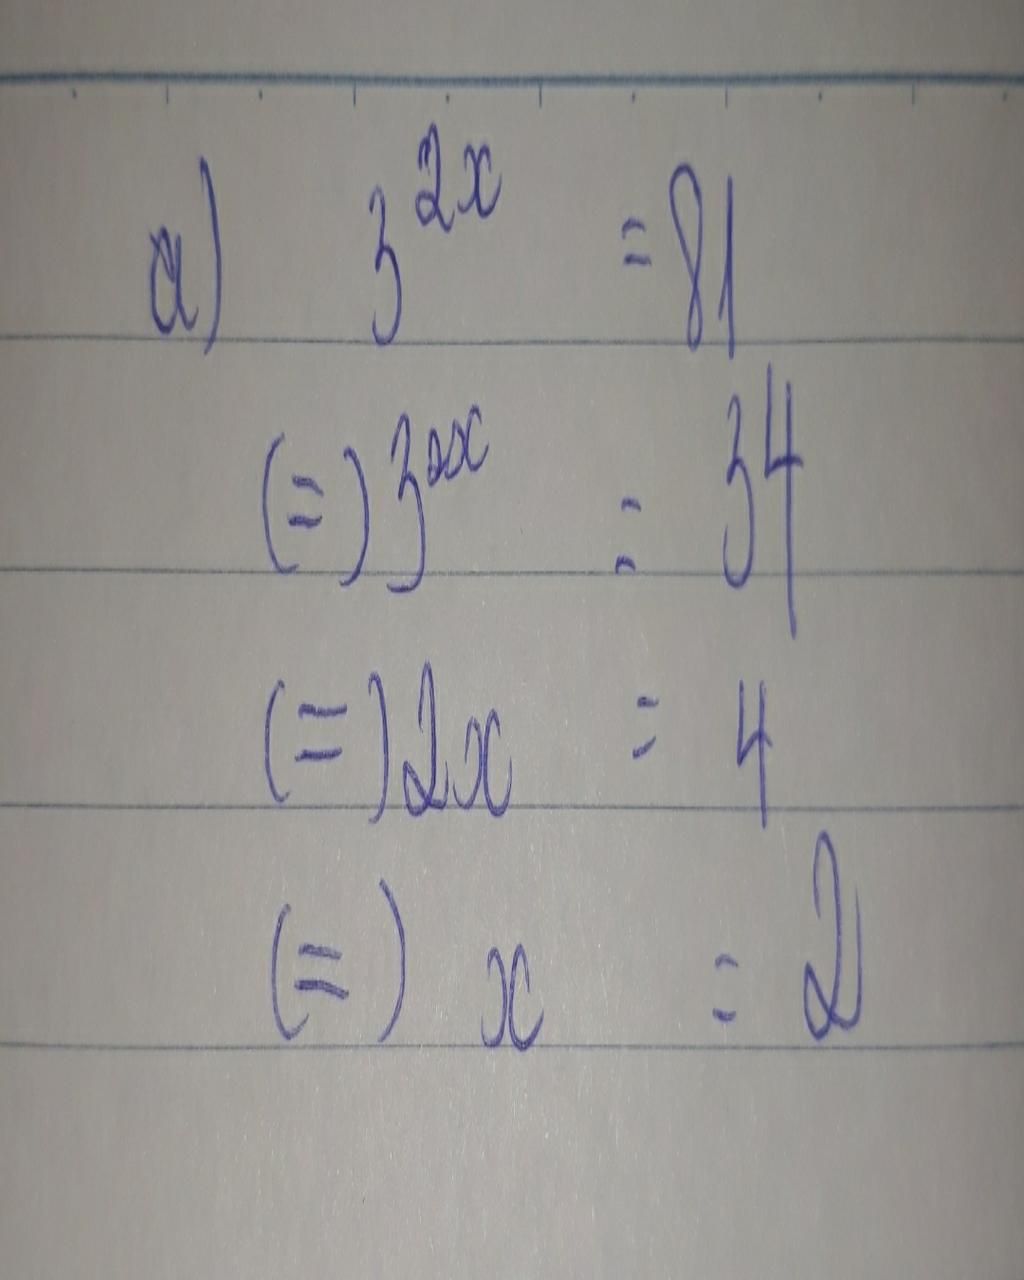 a) 3^2x = 81
(=) 3^2x = 3^4
(=) 2x = 4
(=) x = 2